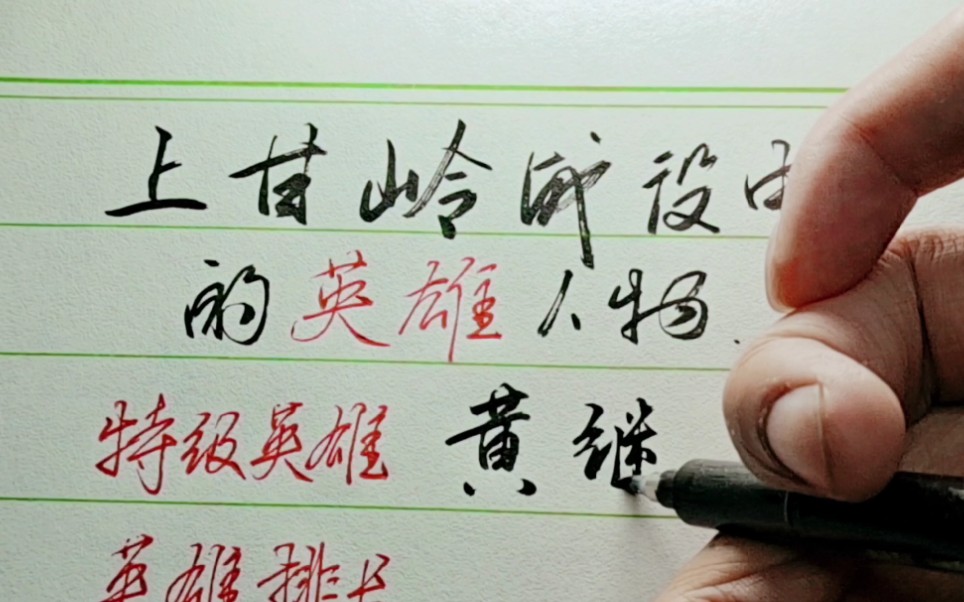 上甘岭战役中
的英雄人物.
特级英雄 黄继
英雄排长